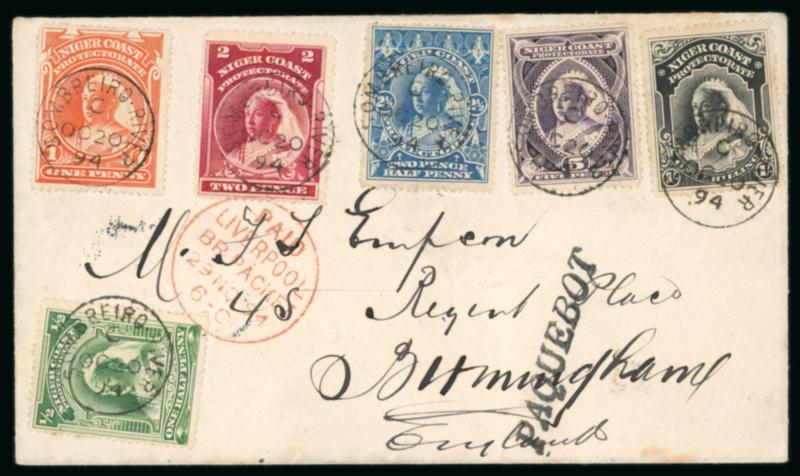 NIGER COAST
PROTECTORATE
1
ONE PENNY
SOMBREIRO RIVER
C
OC 20
94
2 2
NIGER COAST
PROTECTORATE
TWO PENNY
SOMBREIRO RIVER
C
OC 20
94
NIGER COAST
PROTECTORATE
2½ 2½
TWO PENCE
HALF PENNY
SOMBREIRO RIVER
C
NIGER COAST
PROTECTORATE
5 5
FIVE PENCE
SOMBREIRO RIVER
C
NIGER COAST
PROTECTORATE
1/- 1/-
ONE SHILLING
SOMBREIRO RIVER
C
94
PAID
LIVERPOOL
BR. PACKET
29 NO 94
6-C
Empson
Regent Place
Birmingham
England
PAQUEBOT
½ ½
NIGER COAST
PROTECTORATE
ONE HALF PENNY
½ ½
SOMBREIRO RIVER
C
OC 20
94